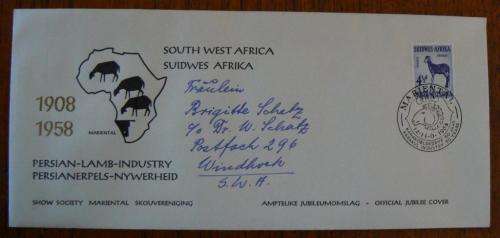 SOUTH WEST AFRICA
SUIDWES AFRIKA
1908
1958
MARIENTAL
PERSIAN-LAMB-INDUSTRY
PERSIANERPELS-NYWERHEID
Fräulein
Brigitte Schatz
c/o Dr. W. Schatz
Postfach 296
Windhoek
S.W.A.
SUIDWES AFRIKA
MARIENTAL
SHOW SOCIETY MARIENTAL SKOUVERENIGING
AMPTELIKE JUBILEUMOMSLAG - OFFICIAL JUBILEE COVER